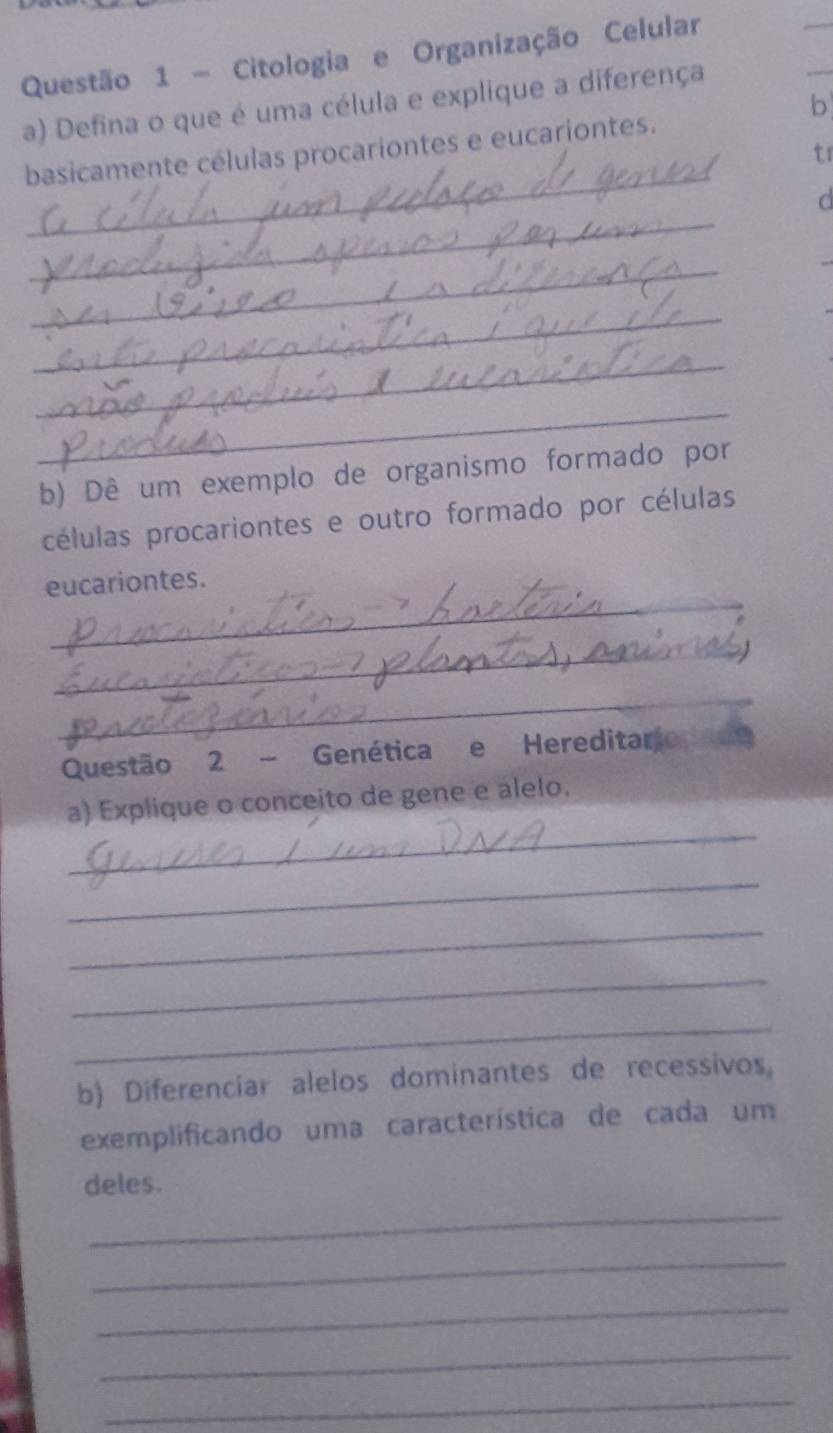 Questão 1 - Citologia e Organização Celular
a) Defina o que é uma célula e explique a diferença
basicamente células procariontes e eucariontes.
a célula é um pedaço de
produzida apenas por um
e a diferença
entre procariotica é que ele
não produis e eucariotica
produs
b) Dê um exemplo de organismo formado por
células procariontes e outro formado por células
eucariontes.
procarioticas -> bactéria
Eucarioticas -> plantas, animais,
Questão 2 - Genética e
a) Explique o conceito de gene e alelo.
é um DNA
b) Diferenciar alelos dominantes de recessivos,
exemplificando uma característica de cada um
deles.
b)
tr
d